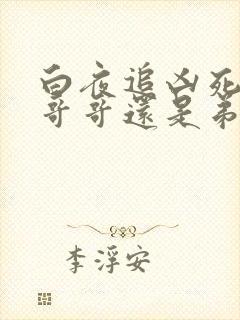 白夜追凶死
哥哥還是弟
李浮安